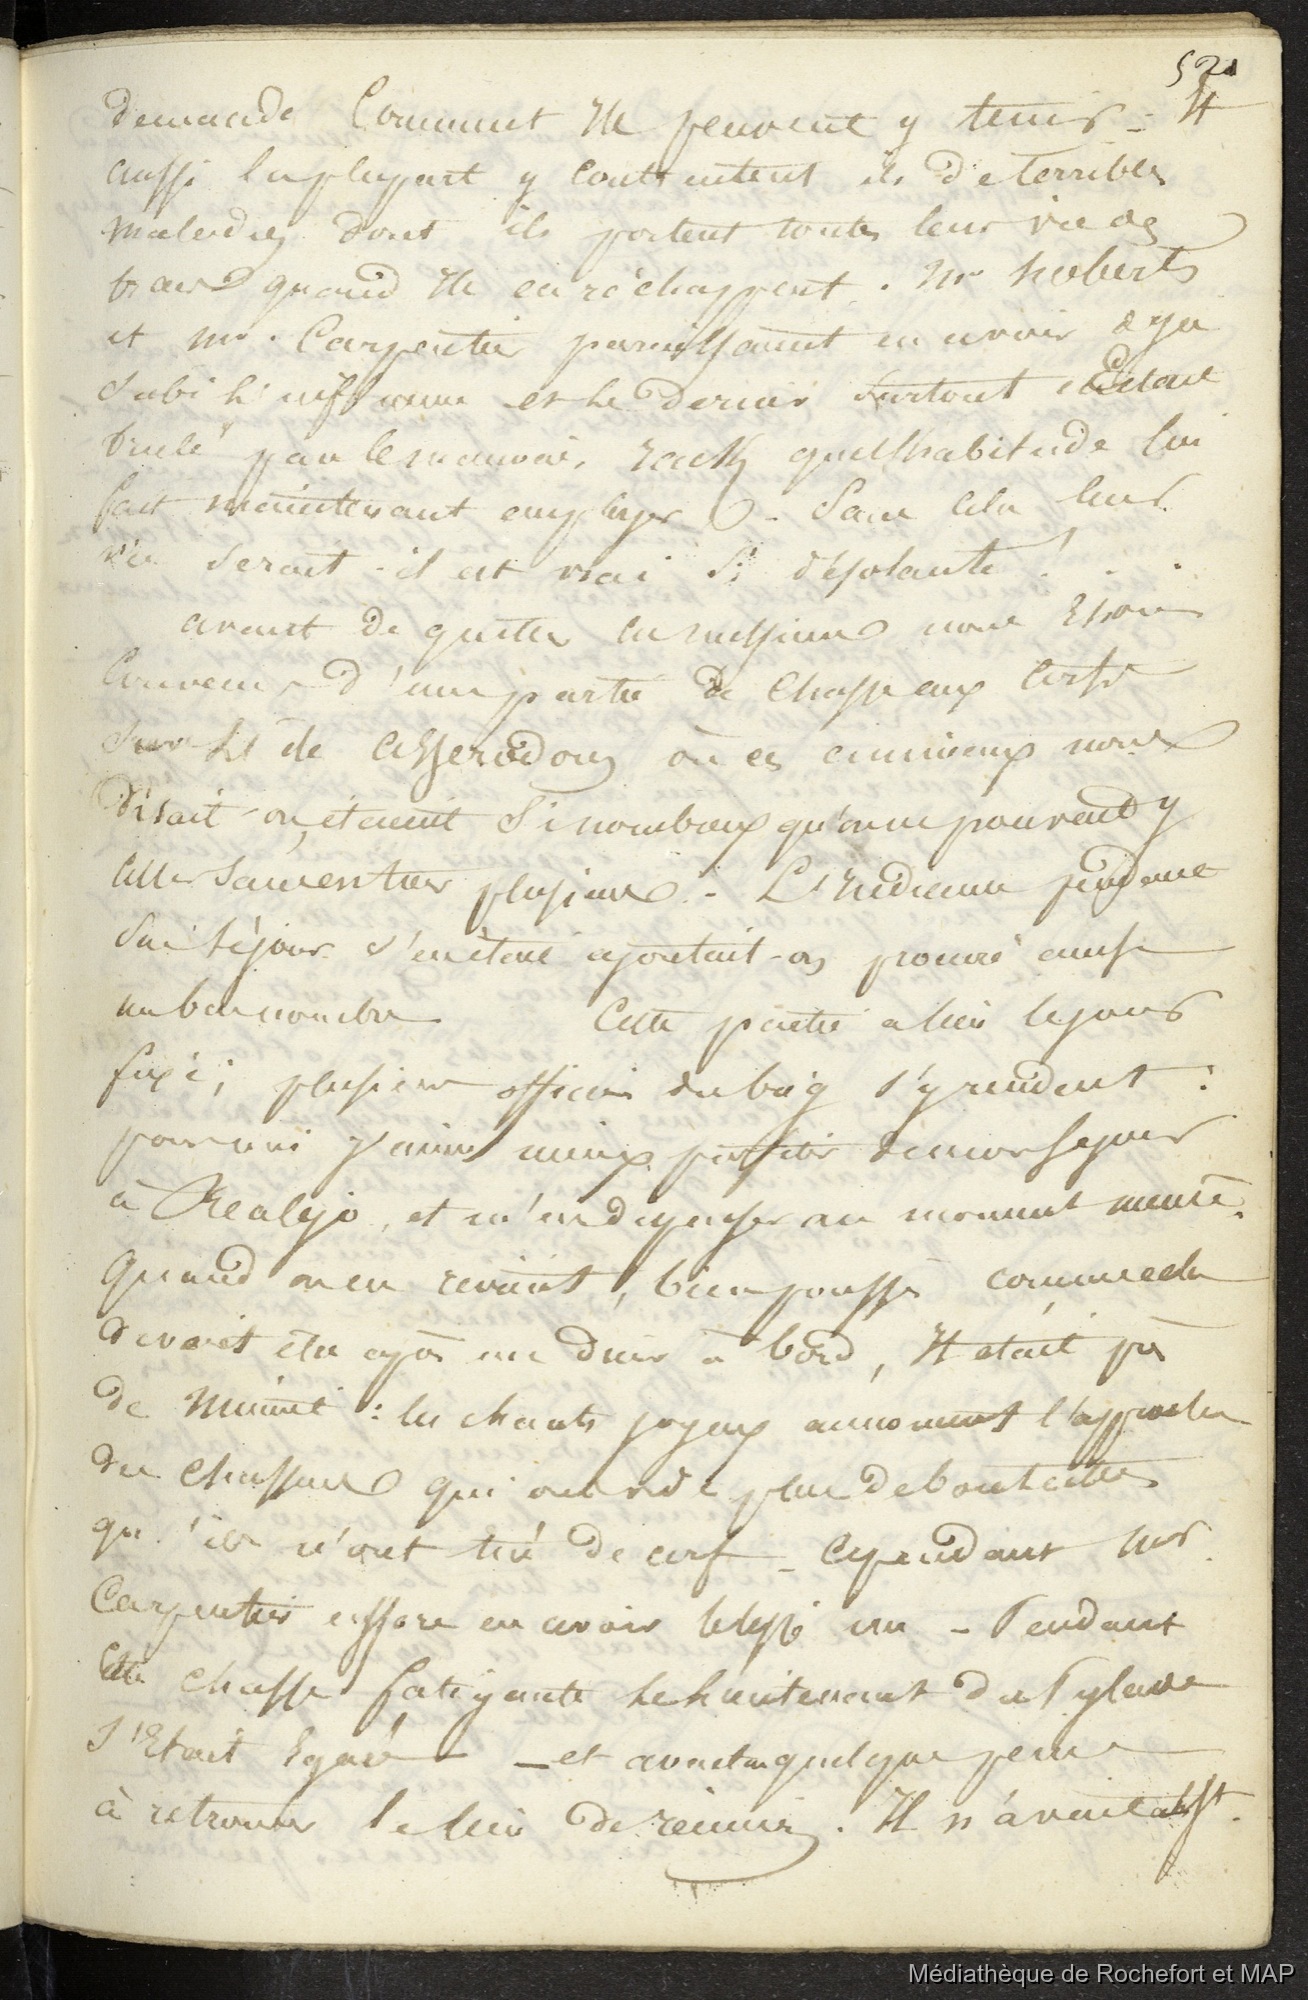 521
demande Comment Ils peuvent y tenir - Et
aussi la plupart y contractent ils de terribles
maladies dont ils portent toutes leur vie des
traces quand Ils en réchappent. Mr Roberts
et Mr. Carpentier paraissaient en avoir deja
subi l'influence et le dernier surtout était
brulé par le mauvais rack que l'habitude lui
fait maintenant employer - Sans cela leur
vie serait - il est vrai si désolante ! . .
avant de quitter ces messieurs nous étions
convenus d'une partie de chasse aux cerfs
sur l'île où ces animaux nous
disait-on, étaient si nombreux qu'on ne pouvait y
aller sans en tuer plusieurs. - L'Indienne pendant
son séjour s'en était ajoutait-on procuré aussi
un bon nombre Cette partie a lieu le jour
fixé ; plusieurs officiers du brig s'y rendent :
pour moi j'aime mieux profiter de mon sejour
à Realejo, et m'en dispenser au moment même.
Quand on en revint, bien poussés comme cela
devait être après un diner à bord, Il était près
de Minuit : les chants joyeux annoncent l'approche
des chasseurs qui ont vidé plus de bouteilles
qu'ils n'ont tué de cerf - Cependant Mr.
Carpentier assure en avoir blessé un - Pendant
cette chasse fatigante le lieutenant du Pylade
s'était égaré - et avait eu quelque peine
à retrouver le lieu de réunion. Il n'avait